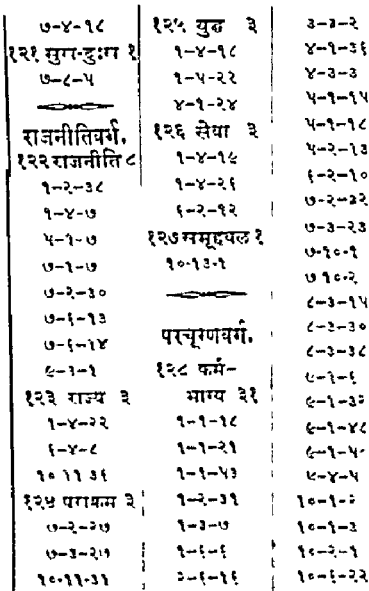 ७-४-१८
१२१ सुख-दुःख १
७-८-५
राजनीतिवर्ग.
१२२ राजनीति ८
१-२-३८
१-४-७
५-१-७
७-१-७
७-२-३०
७-६-१३
७-६-१४
९-३-१
१२३ राज्य ३
१-४-२२
६-४-८
१०-११-३६
१२४ पराक्रम ३
७-२-२७
७-३-२७
१०-११-३१
१२५ युद्ध ३
१-४-१८
१-५-२२
४-१-२४
१२६ सेवा ३
१-४-१९
१-४-२६
६-२-१२
१२७ समूहबल १
१०-१३-१
परचूरणवर्ग.
१२८ कर्म-
भाग्य ३१
१-१-१८
१-१-२१
१-१-५३
१-२-३१
१-३-७
१-६-६
२-६-१६
३-३-२
४-१-३६
४-३-३
५-१-१५
५-१-१८
५-२-१३
६-२-१०
७-२-३२
७-३-२३
७-१०-१
७-१०-२
८-३-१५
८-३-३०
८-३-३८
९-१-६
९-१-३२
९-१-४८
९-१-५०
९-४-५
१०-१-२
१०-१-३
१०-२-१
१०-६-२२